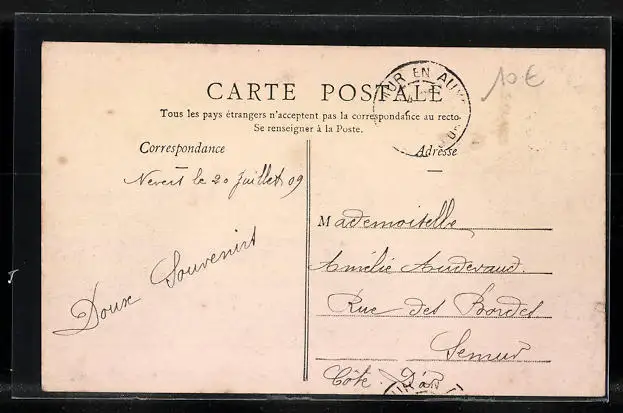 10 €
MUR EN AUX
CARTE POSTALE
Tous les pays étrangers n'acceptent pas la correspondance au recto.
Se renseigner à la Poste.
Correspondance
Nevers le 20 juillet 09
Doux Souvenirs
Adresse
Mademoiselle
Amélie Auderaud.
Rue des Bordes
Semur
Côte d'Or